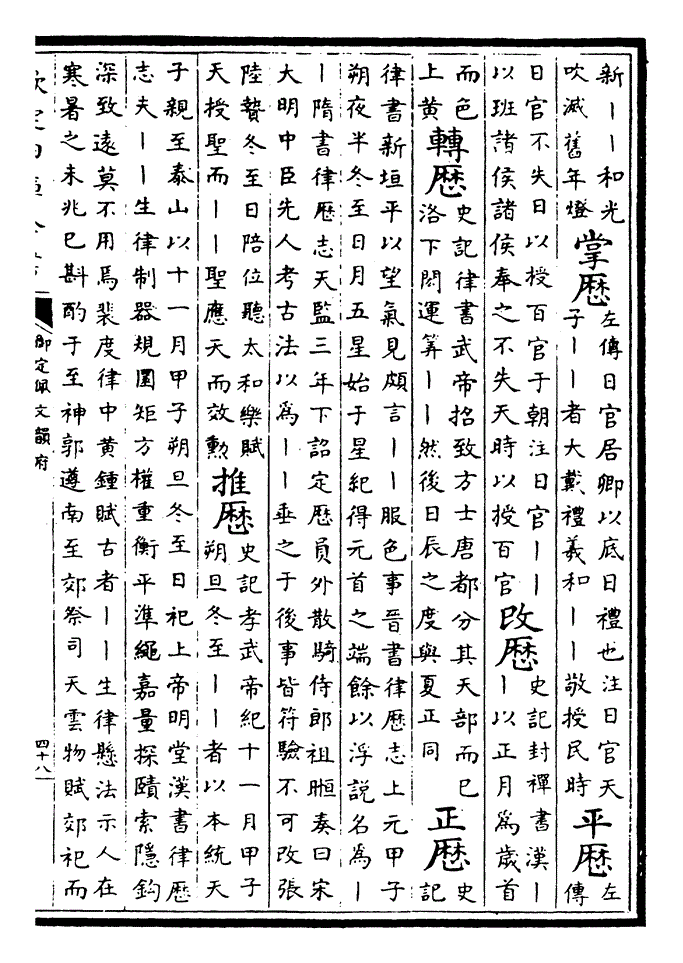 新丨丨和光
吹滅舊年燈
掌厯
左傳日官居卿以底日禮也注日官天
子丨丨者大戴禮羲和丨丨敬授民時
平厯
左
傳
日官不失日以授百官于朝注日官丨丨
以班諸侯諸侯奉之不失天時以授百官
改厯
史記封禪書漢丨
丨以正月為歲首
而色
上黄
轉厯
史記律書武帝招致方士唐都分其天部而巳
洛下閎運筭丨丨然後日辰之度與夏正同
正厯
史
記
律書新垣平以望氣見頗言丨丨服色事晉書律厯志上元甲子
朔夜半冬至日月五星始于星紀得元首之端餘以浮説名為丨
丨隋書律厯志天監三年下詔定厯員外散騎侍郎祖暅奏曰宋
大明中臣先人考古法以為丨丨垂之于後事皆符驗不可改張
陸贄冬至日陪位聽太和樂賦
天授聖而丨丨聖應天而效勲
推厯
史記孝武帝紀十一月甲子
朔旦冬至丨丨者以本統天
子親至泰山以十一月甲子朔旦冬至日祀上帝明堂漢書律厯
志夫丨丨生律制器規圜矩方權重衡平準繩嘉量探賾索隱鈎
深致遠莫不用焉裴度律中黄鍾賦古者丨丨生律懸法示人在
寒暑之未兆巳斟酌于至神郭遵南至郊祭司天雲物賦郊祀而
欽定四庫全書
御定佩文韻府
四十八